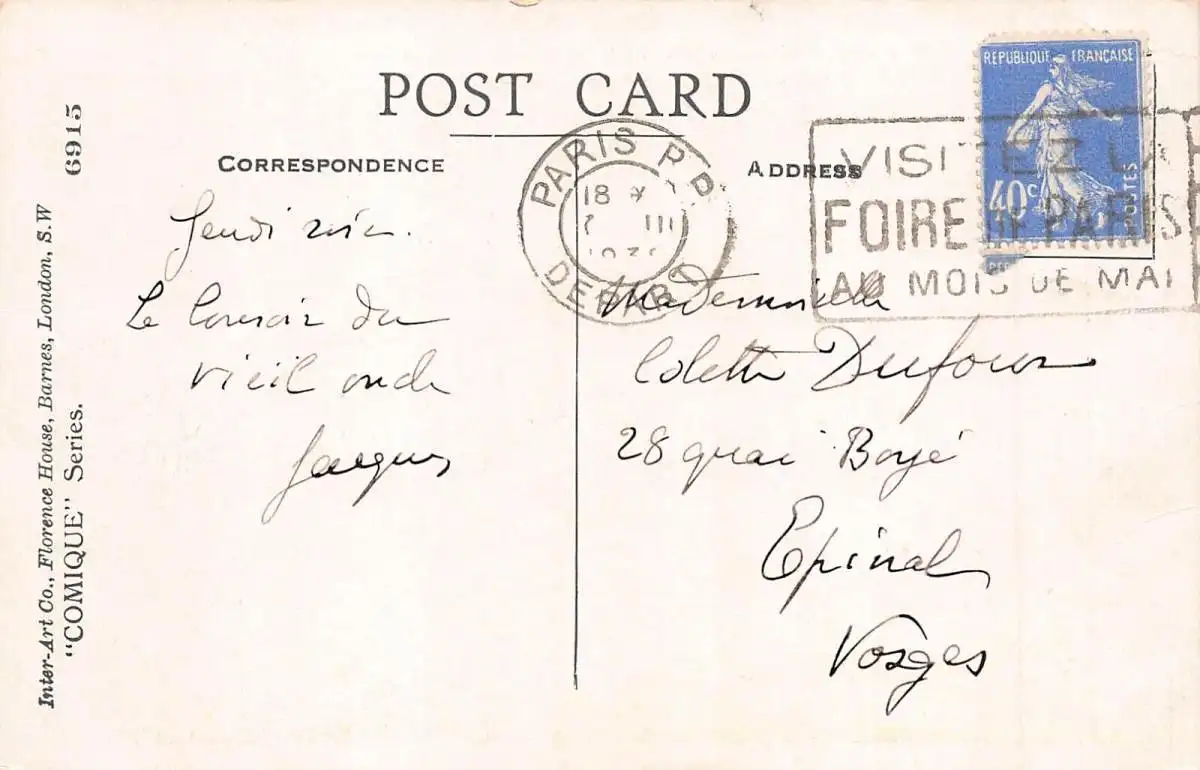 POST CARD
CORRESPONDENCE
ADDRESS
6915
Inter-Art Co., Florence House, Barnes, London, S.W
"COMIQUE" Series.
REPUBLIQUE FRANÇAISE
40c
POSTES
PARIS P.P.
18
7 III
DEPART
VISITEZ LA
FOIRE DE PARIS
AU MOIS DE MAI
Jeudi
Le
du
vieil oncle
Jacques
Mademoiselle
Colette Dufour
28 quai Boyé
Epinal
Vosges